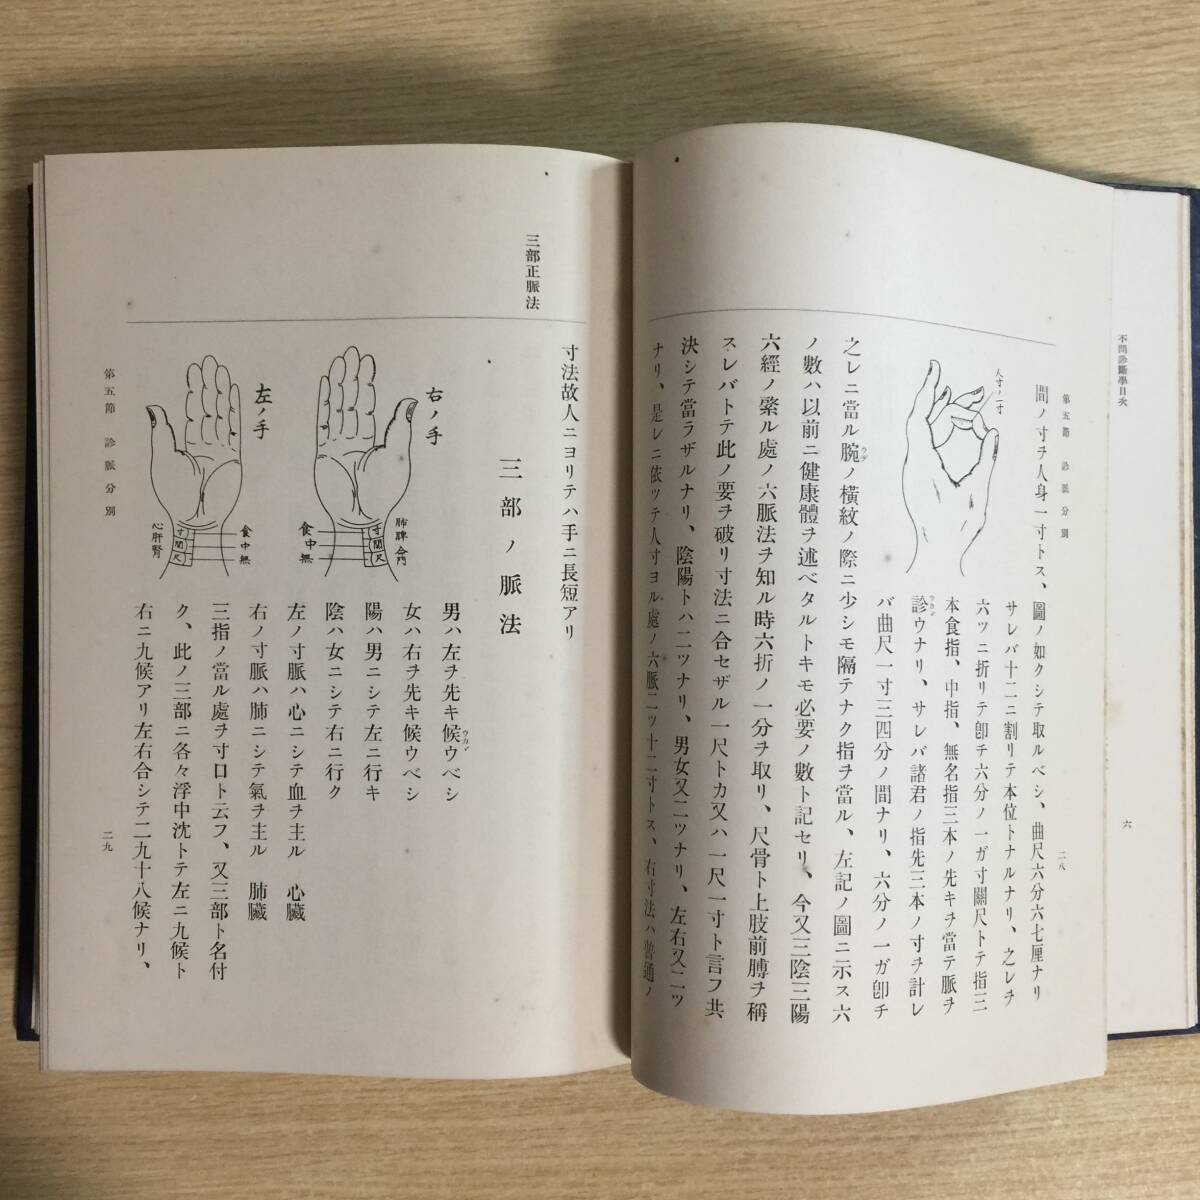 不問診斷學目次
六
第五節 診脈分別
二八
間ノ寸ヲ人身一寸トス、圖ノ如クシテ取ルベシ、曲尺六分六七厘ナリ
人寸ノ一寸
サレバ十二ニ割リテ本位トナルナリ、之レヲ
六ツニ折リテ卽チ六分ノ一ガ寸關尺トテ指三
本食指、中指、無名指三本ノ先キヲ當テ脈ヲ
診ウナリ、サレバ諸君ノ指先三本ノ寸ヲ計レ
バ曲尺一寸三四分ノ間ナリ、六分ノ一ガ卽チ
之レニ當ル腕ノ橫紋ノ際ニ少シモ隔テナク指ヲ當ル、左記ノ圖ニ示ス六
ウデ
ノ數ハ以前ニ健康體ヲ述ベタルトキモ必要ノ數ト記セリ、今又三陰三陽
六經ノ係ル處ノ六脈法ヲ知ル時六折ノ一分ヲ取リ、尺骨ト上肢前膊ヲ稱
スレバトテ此ノ要ヲ破リ寸法ニ合セザル一尺トカ又ハ一尺一寸ト言フ共
決シテ當ラザルナリ、陰陽トハ二ツナリ、男女又二ツナリ、左右又二ツ
ナリ、是レニ依ツテ人寸ヨル處ノ六脈二ツ十二寸トス、右寸法ハ普通ノ
三部正脈法
寸法故人ニヨリテハ手ニ長短アリ
三部ノ脈法
右ノ手
肺脾命門
寸
關
尺
食中無
左ノ手
食中無
寸
關
尺
心肝腎
男ハ左ヲ先キ候ウベシ
女ハ右ヲ先キ候ウベシ
陽ハ男ニシテ左ニ行キ
陰ハ女ニシテ右ニ行ク
左ノ寸脈ハ心ニシテ血ヲ主ル 心臟
右ノ寸脈ハ肺ニシテ氣ヲ主ル 肺臟
三指ノ當ル處ヲ寸口ト云フ、又三部ト名付
ク、此ノ三部ニ各々浮中沈トテ左ニ九候ト
右ニ九候アリ左右合シテ二九十八候ナリ、
第五節 診脈分別
二九